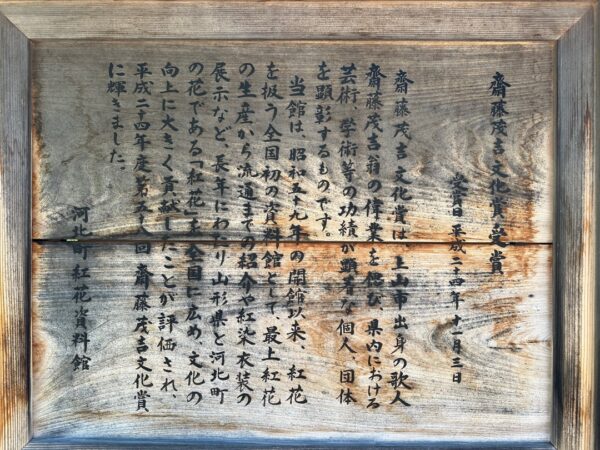 齋藤茂吉文化賞受賞
受賞日 平成二十四年 十一月三日
齋藤茂吉文化賞は、上山市出身の歌人
齋藤茂吉翁の偉業を偲び、県内における
芸術、学術等の功績が顕著な個人、団体
を顕彰するものです。
当館は、昭和五十九年の開館以来、紅花
を扱う全国初の資料館として、最上紅花
の生産から流通までの紹介や紅染衣装の
展示など、長年にわたり山形県と河北町
の花である「紅花」を全国に広め、文化の
向上に大きく貢献したことが評価され、
平成二十四年度第五十八回 齋藤茂吉文化賞
に輝きました。
河北町紅花資料館